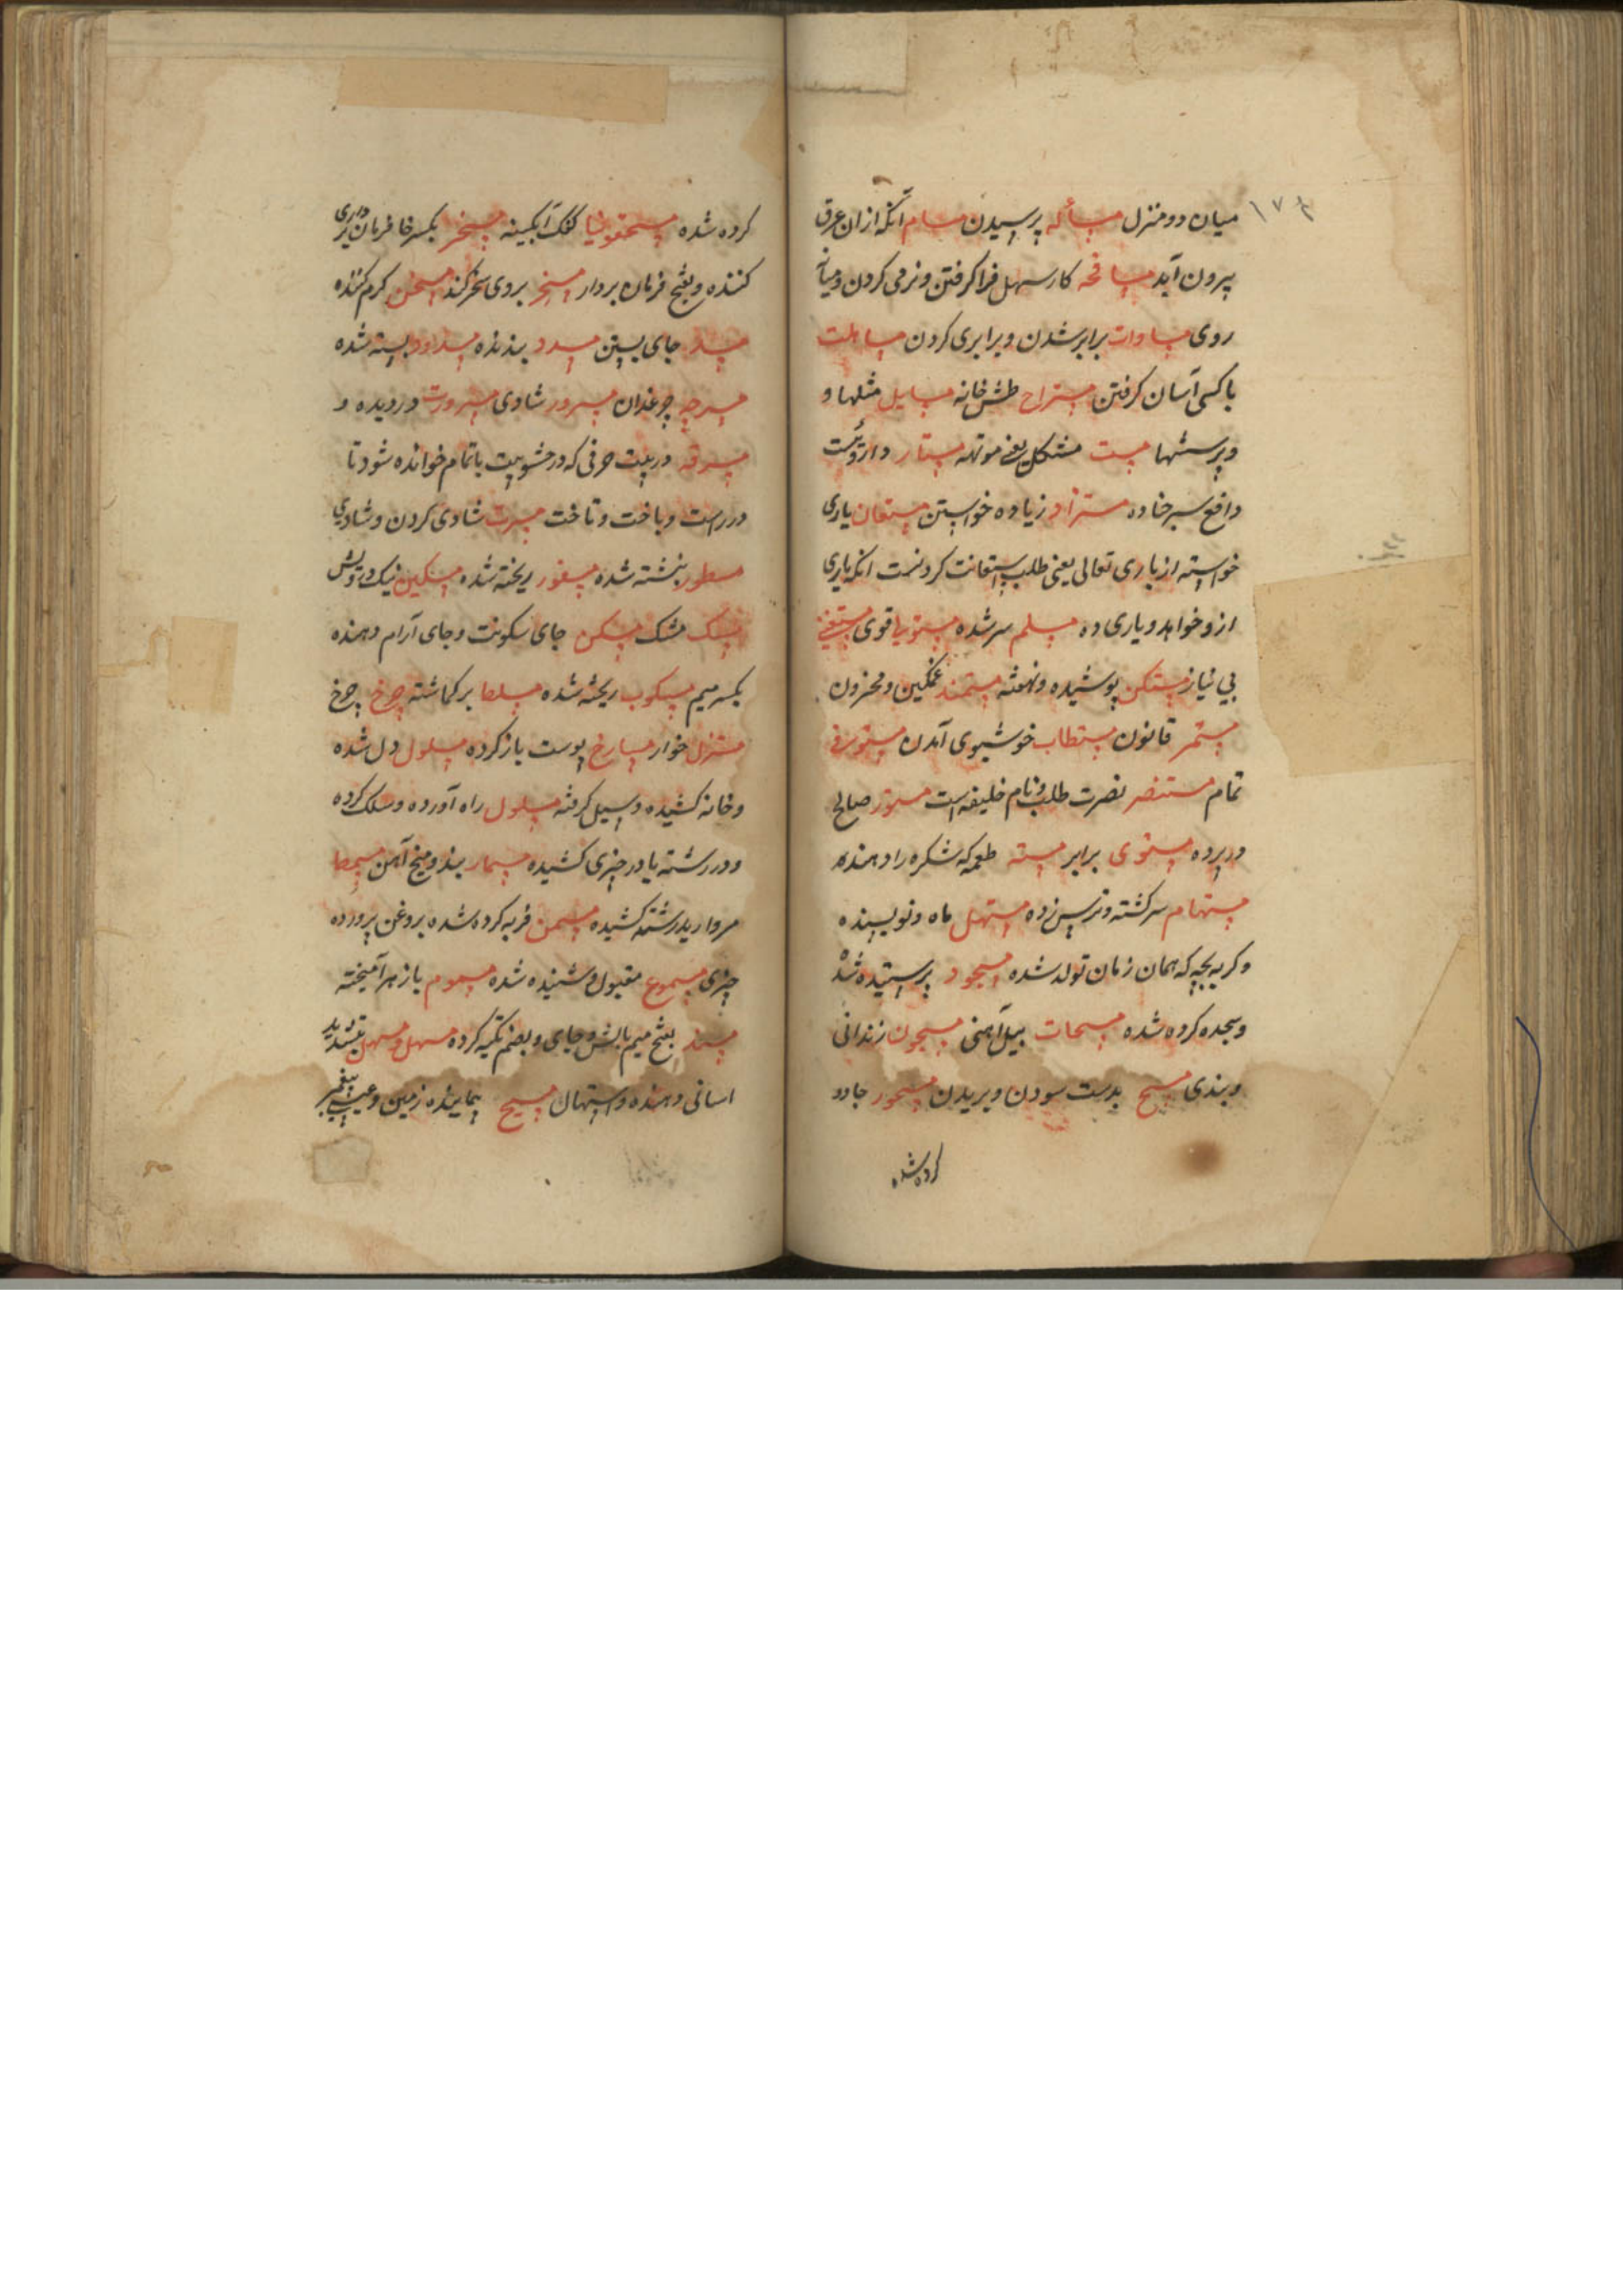 ۱۷۴
میان دو منزل مسأله پرسیدن مسام آنکه ازان عرق
بیرون آید مسافحه کار سهل فرا کرفتن و نرمی کردن و میانه
روی مساوات برابر شدن و برابری کردن مساهلت
با کسی آسان کرفتن مستراح طشتخانه مسایل مثلها و
و پرسشها مست مشکل یعنی موتهه مستار دارویست
دافع سبر خاده مستزاد زیاده خواستن مستعان یاری
خواسته از باری تعالی یعنی طلب استعانت کردنست انکه یاری
ازو خواهد و یاری ده مسلم سر شده مستولی قوی مستغنی
بی نیاز مستکن پوشیده و نهفته مستمند غمکین و محزون
مستمر قانون مستطاب خوشبوی آمدن مستوفی
تمام مستنصر نصرت طلب و نام خلیفه است مستور صالح
در پرده مستوی برابر مسته طعمه که شکره را دهند
مستهام سر کشته و ترسن زده مستهل ماه و نویسنده
و کربه بچه که همان زمان تولد شده مسجود پرستیده شد
و سجده کرده شده مسحات بیل آهنی مسجون زندانی
و بندی مسح بدست سودن و بریدن مسحور جادو
کرده شده
کرده شده مسحقونیا کفک آبکینه مسخر بکسر خا فرمان
کننده و بفتح فرمان بردار مسخر بروی سخر کند مسخن کرم کننده
مسد جای بستن مسدد بندنده مسدود بسته شده
مسرجه چرغدان مسرور شادی مسرورت دردیده و
مسرقه در بیت حرفی که در حشو بیت باتمام خوانده شود تا
در راست و باخت و تاخت مسرت شادی کردن و شادی
مسطور نبشته شده مسفور ریخته شده مسکین نیک درویش
مسک مشک مسکن جای سکونت و جای آرام دهنده
بکسر میم مسکوب ریخته شده مسلط بر کماشته چرخ چرخ
مستزل خوار مسارخ پوست باز کرده مسلول دل شده
و خانه کشیده و سیل کرفته مسلول راه آورده و سلک کرده
و در رشته یا در چیزی کشیده مسمار بند و میخ آهن مسمط
مروارید در رشته کشیده مسمن فربه کرده شده بروغن پرورده
چیزی مسموع مقبول و شنیده شده مسموم با زهر آمیخته
مسند بفتح میم بالش و جای و بضم تکیه کرده مسهل و مسهل بتشدید
اسانی دهنده و استهال مسیح پیماینده زمین و عیسی پیغمبر